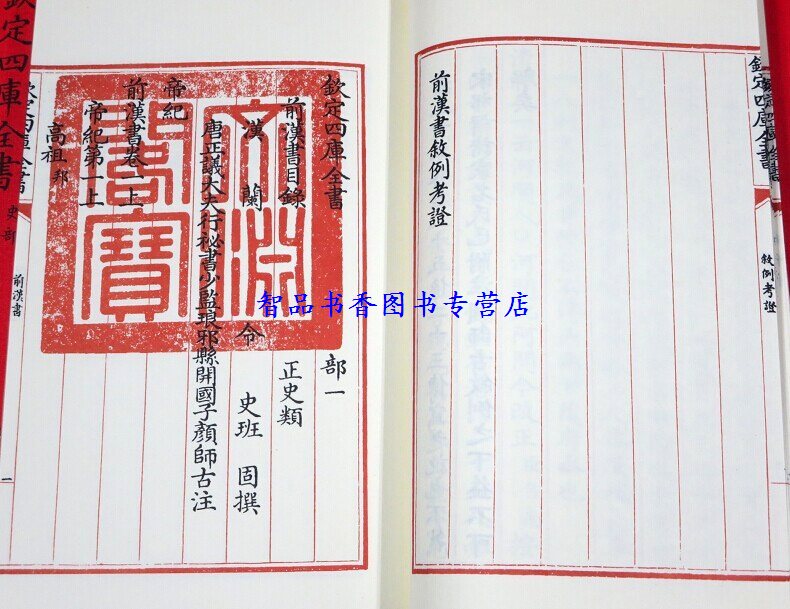 欽定四庫全書
敘例考證
前漢書敘例考證
欽定四庫全書 部一
前漢書目錄 正史類
漢 蘭 令 史班 固撰
唐正議大夫行秘書少監琅邪縣開國子顏師古注
帝紀
前漢書卷一上
帝紀第一上
高祖邦
文淵
閣寶
欽定四庫全書
史部
前漢書
一
欽定四庫全書
智品书香图书专营店